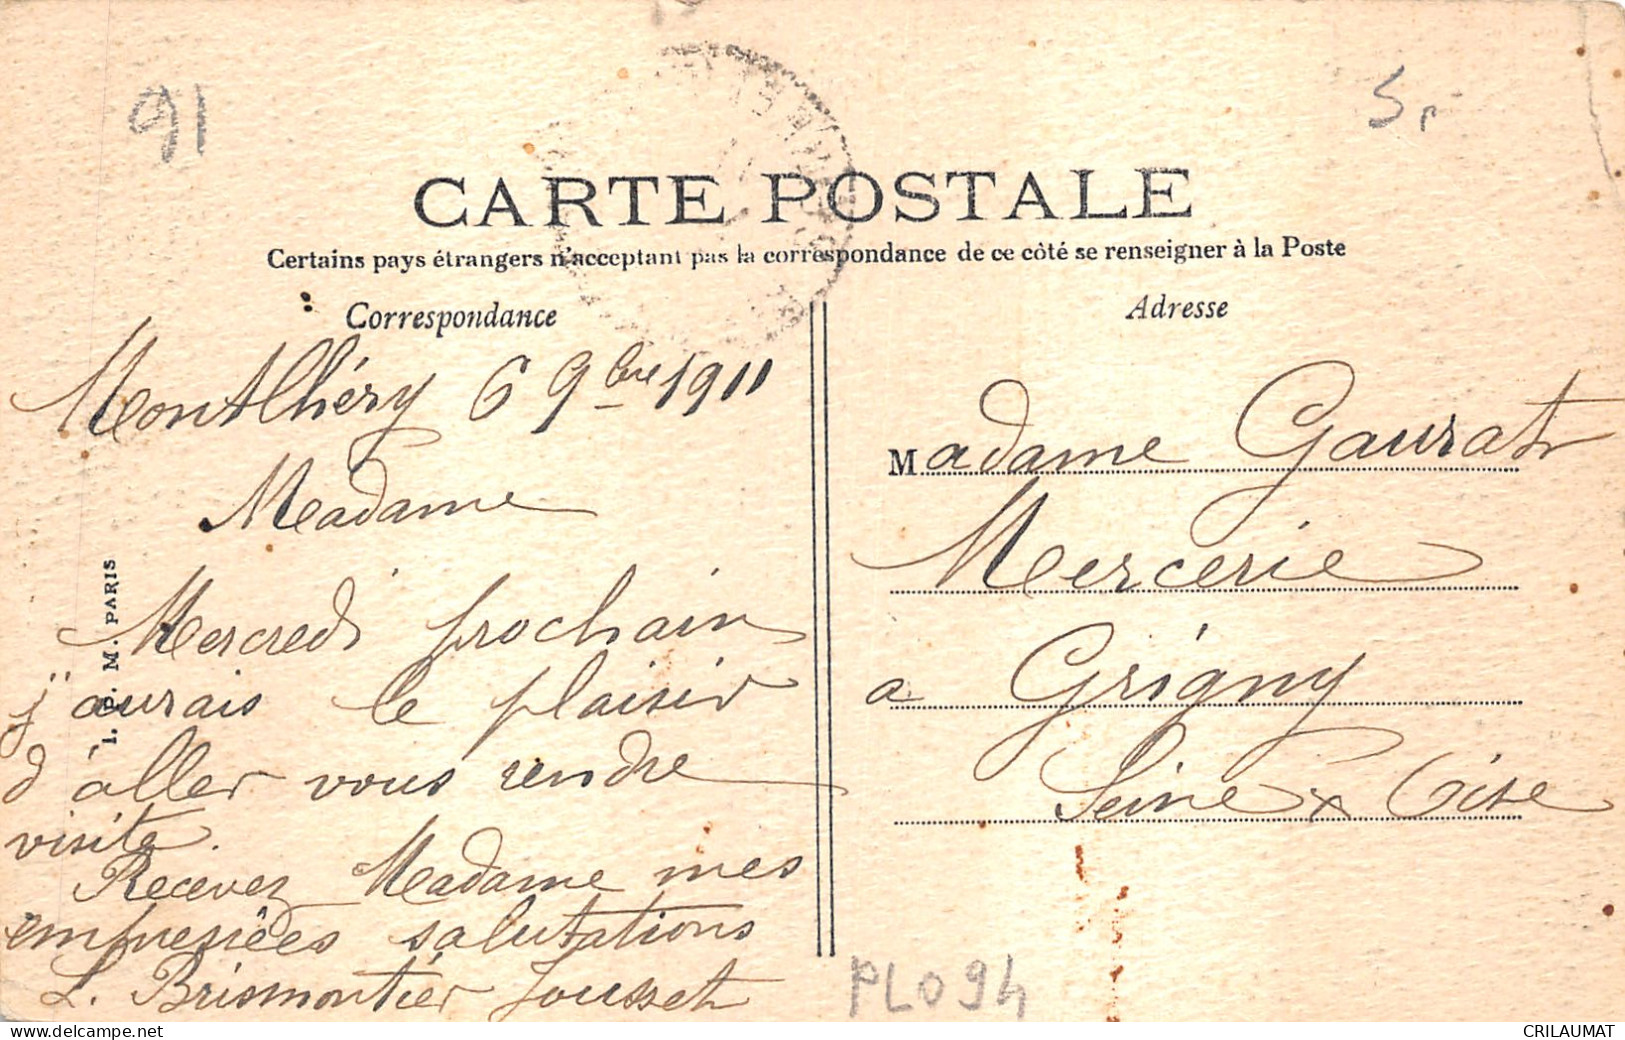 91
CARTE POSTALE
Certains pays étrangers n'acceptant pas la correspondance de ce côté se renseigner à la Poste
Correspondance
Montlhéry 6 9bre 1911
Madame
Mercredi prochain
j'aurais le plaisir
d'aller vous rendre
visite.
Recevez Madame mes
empressées salutations
L. Brismontier Jousset
I. P. M. PARIS
Adresse
Madame Gaurat
Mercerie
a Grigny
Seine & Oise
PL094
www.delcampe.net
CRILAUMAT